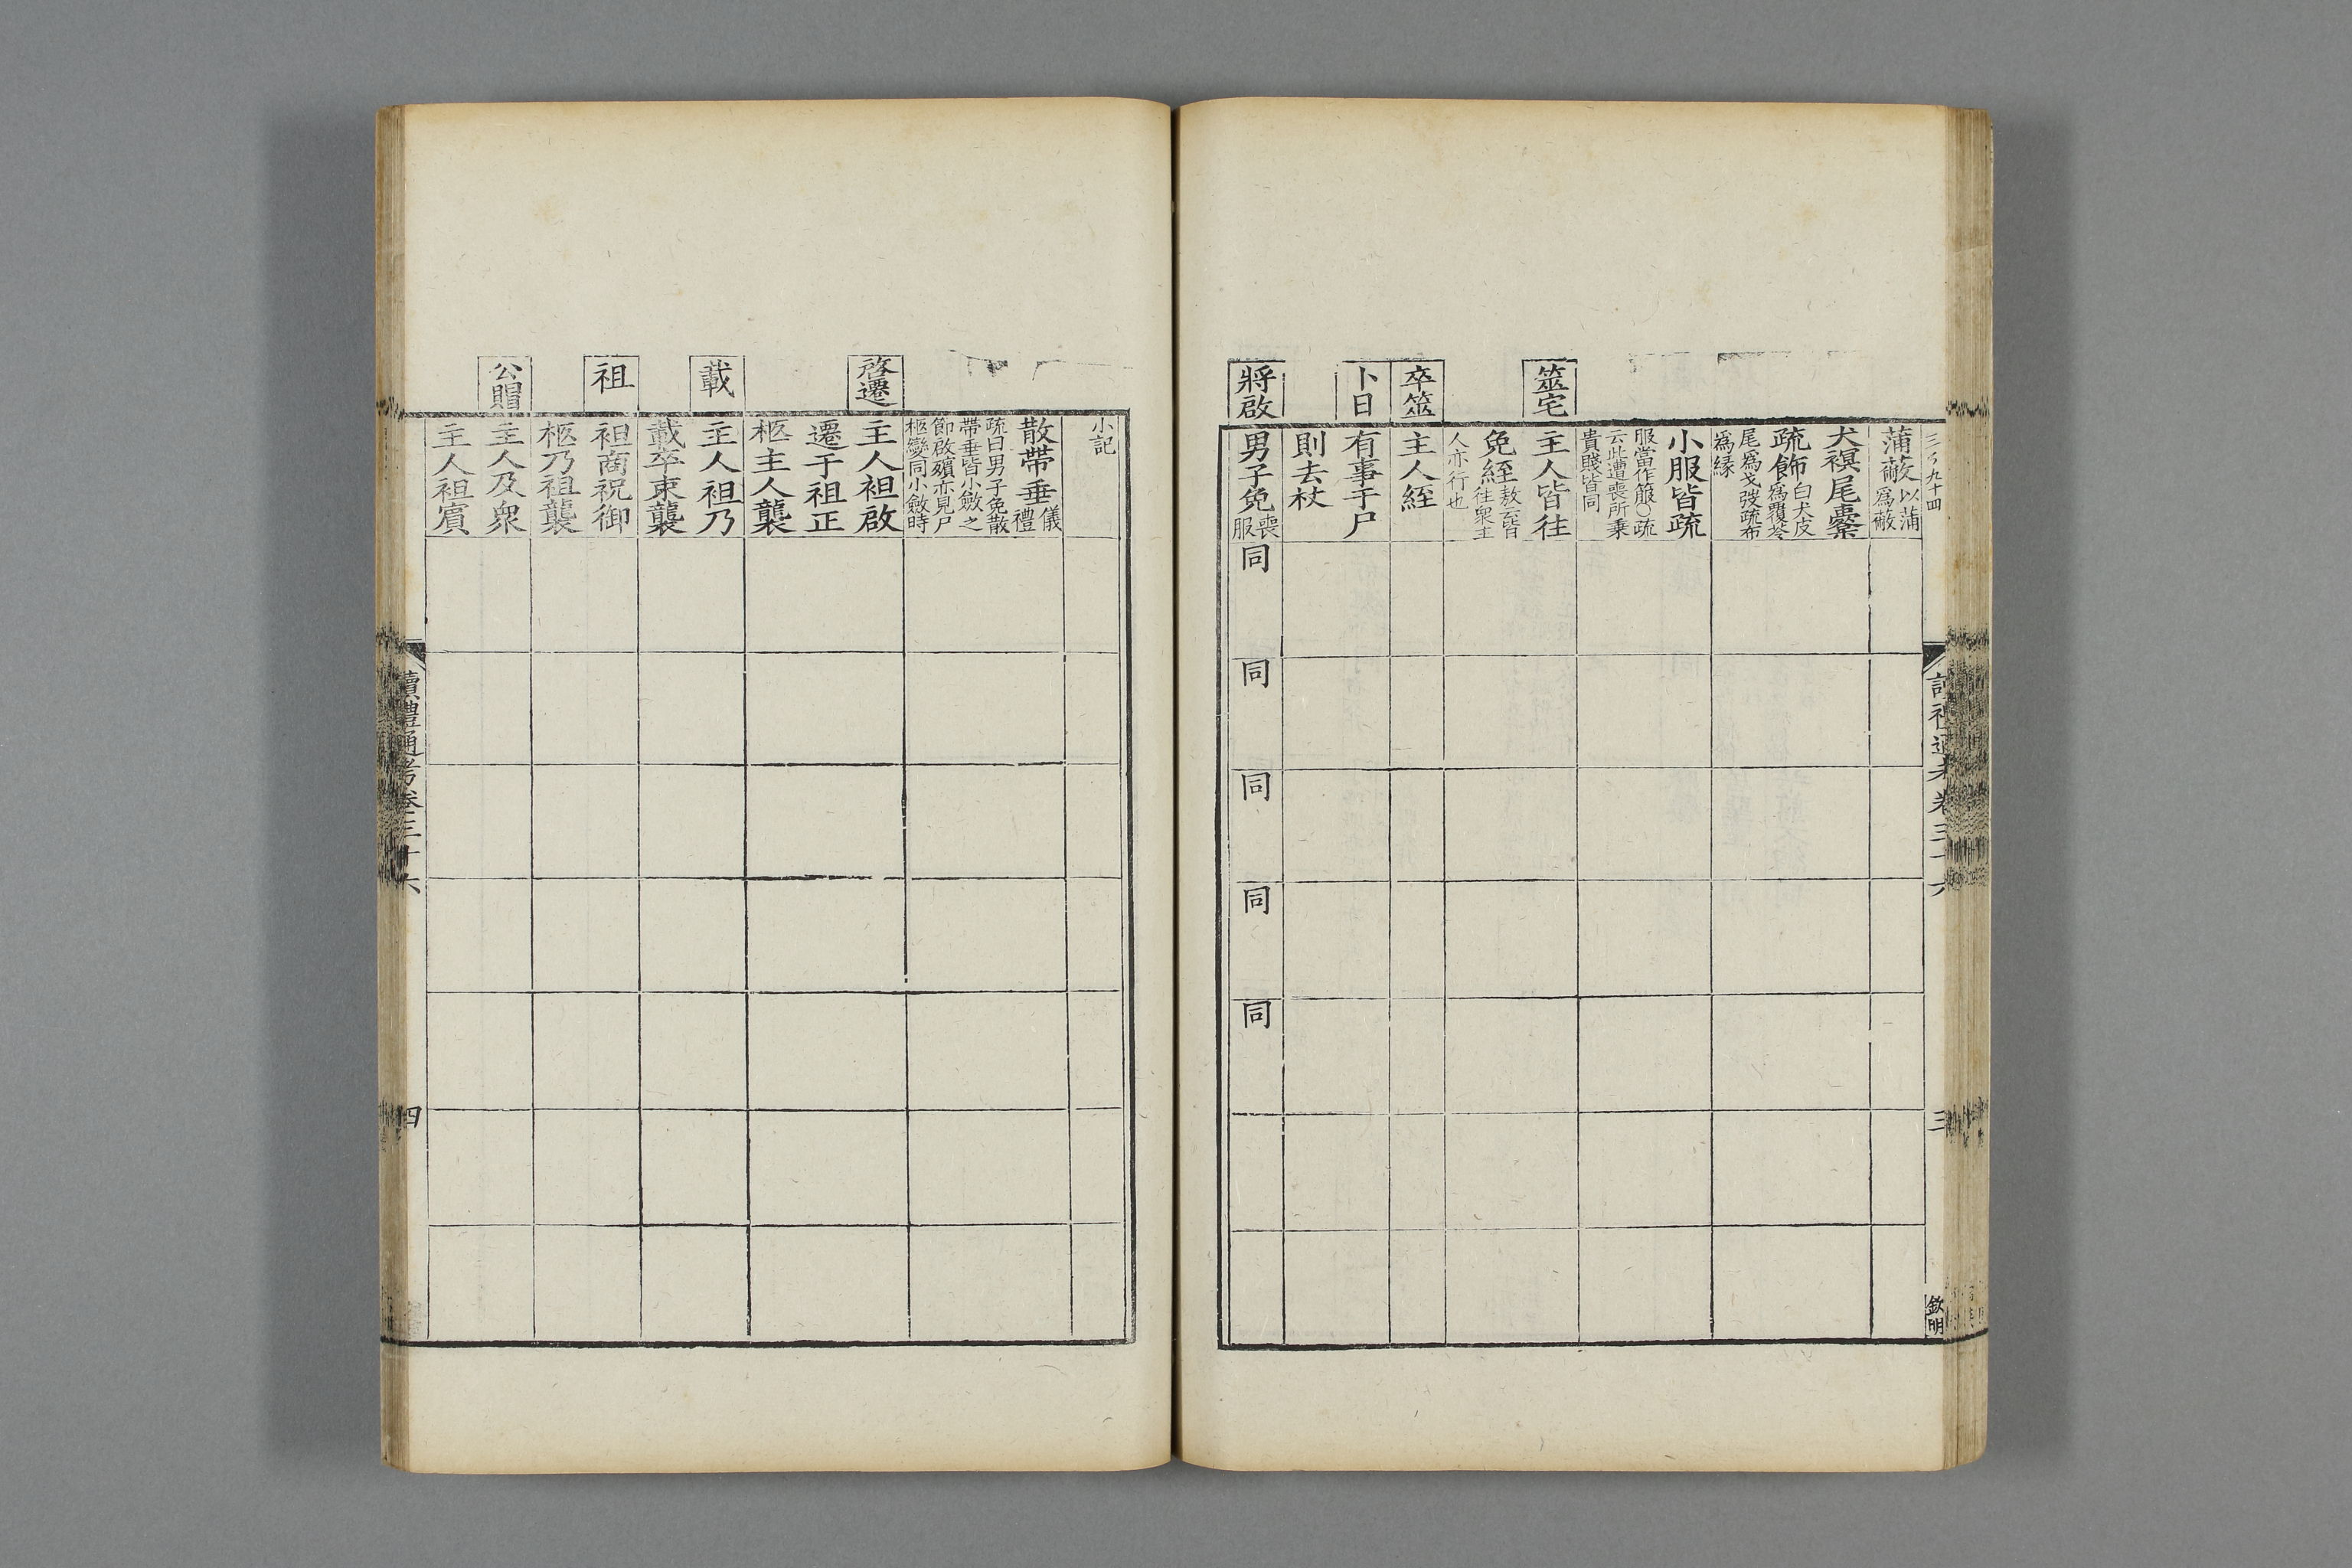 三百九十四
讀禮通考卷三十六
三
欽明
蒲蔽以蒲
爲蔽
犬䙱尾櫜
疏飾白犬皮
爲覆笭
尾爲戈弢疏布
爲緣
小服皆疏
服當作箙○疏
云此遭喪所乗
貴賤皆同
筮宅
主人皆往
免絰敖云皆
往衆主
人亦行也
卒筮
主人絰
卜日
有事于尸
則去杖
將啟
男子免喪
服
同
同
同
同
同
小記
散帶垂儀
禮
疏曰男子免散
帶垂皆小斂之
節啟殯亦見尸
柩變同小斂時
啓遷
主人袒啟
遷于祖正
柩主人襲
載
主人袒乃
載卒束襲
祖
袒商祝御
柩乃祖襲
公賵
主人及衆
主人袒賔
讀禮通考卷三十六
四